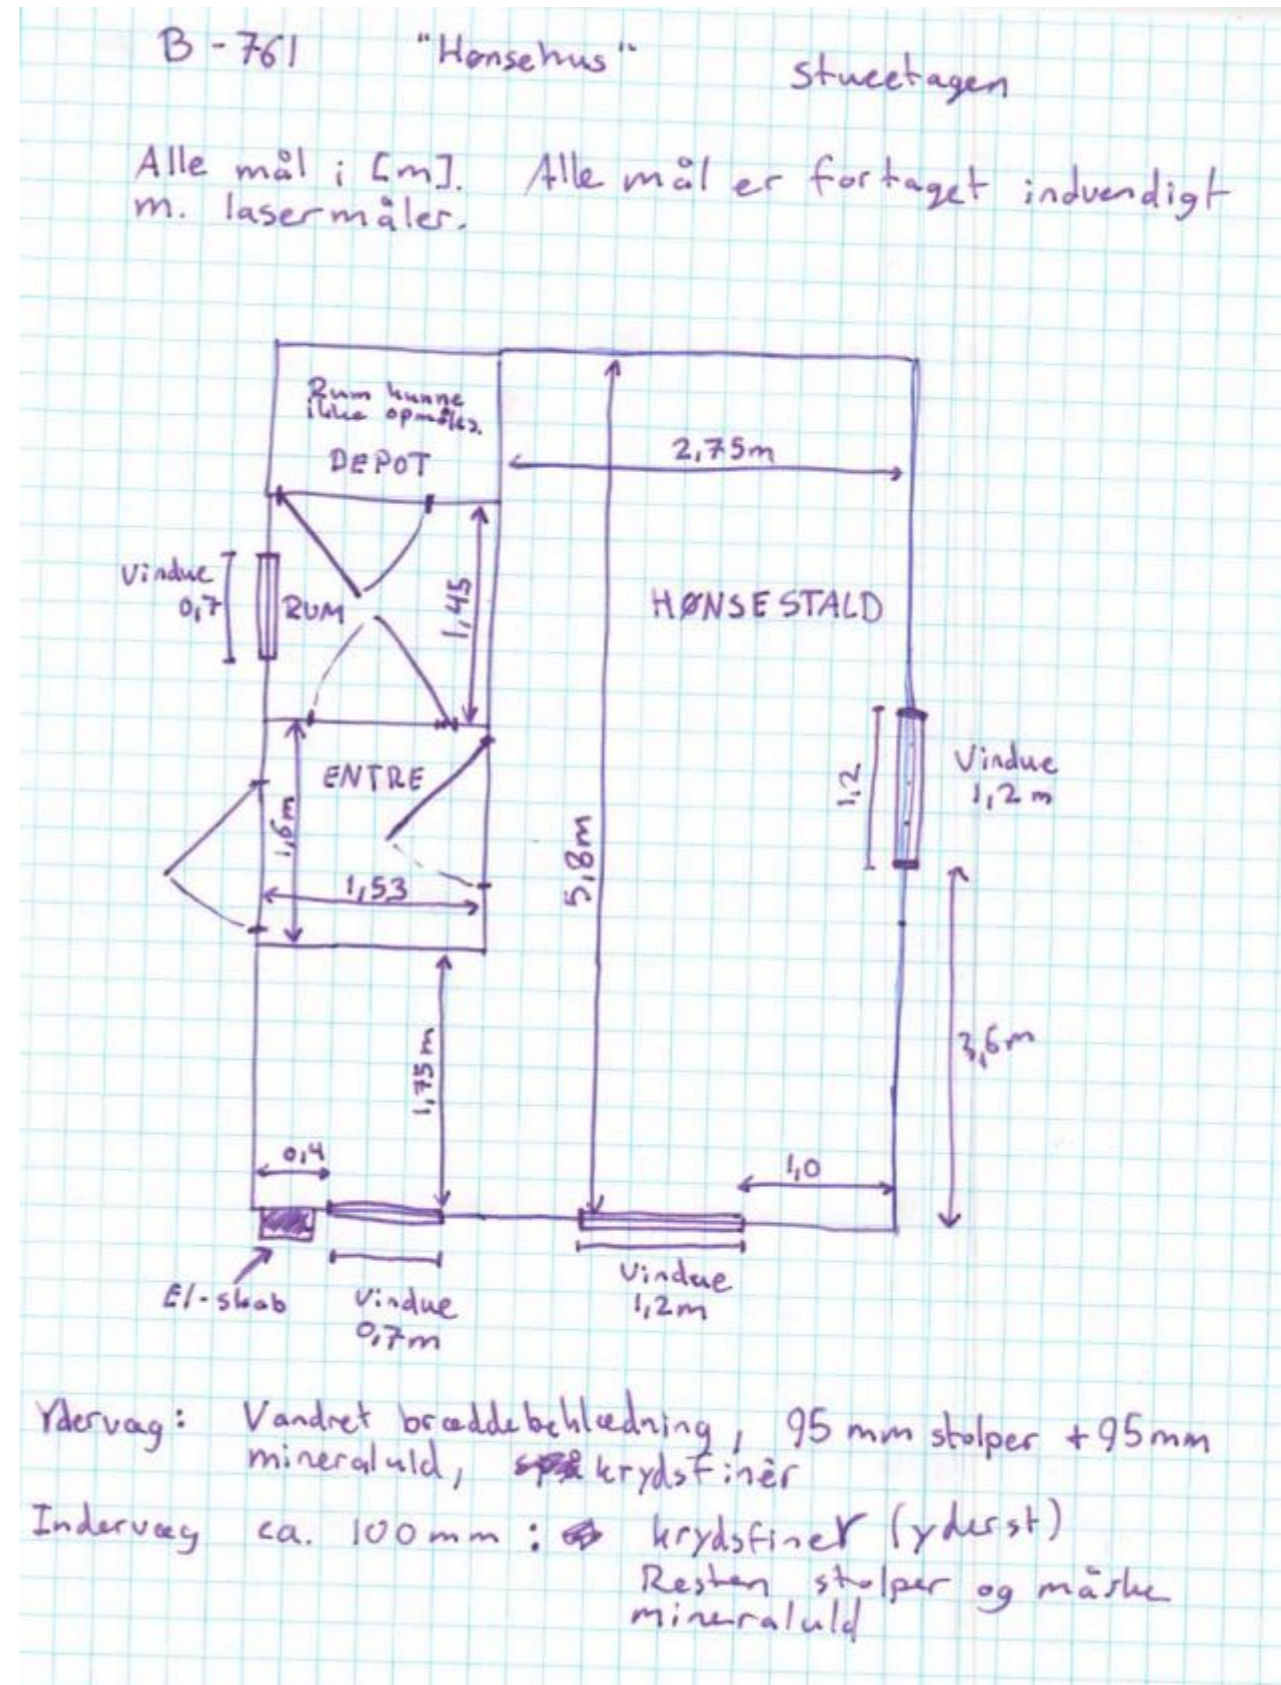 B-761 "Hønsehus" stueetagen
Alle mål i [m]. Alle mål er fortaget indvendigt
m. lasermåler.
Rum kunne
ikke opmåles.
DEPOT
2,75m
Vindue
0,7
RUM
1,45
HØNSESTALD
ENTRE
1,6m
1,53
5,8m
1,2
Vindue
1,2m
1,75m
3,6m
0,4
1,0
El-skab
Vindue
0,7m
Vindue
1,2m
Ydervæg: Vandret bræddebeklædning, 95 mm stolper + 95mm
mineraluld, krydsfinér
Indervæg ca. 100mm: krydsfiner (yderst)
Resten stolper og måske
mineraluld